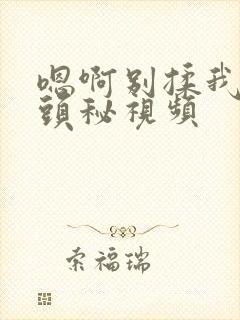 嗯啊别揉我
頭秘視頻
索福瑞